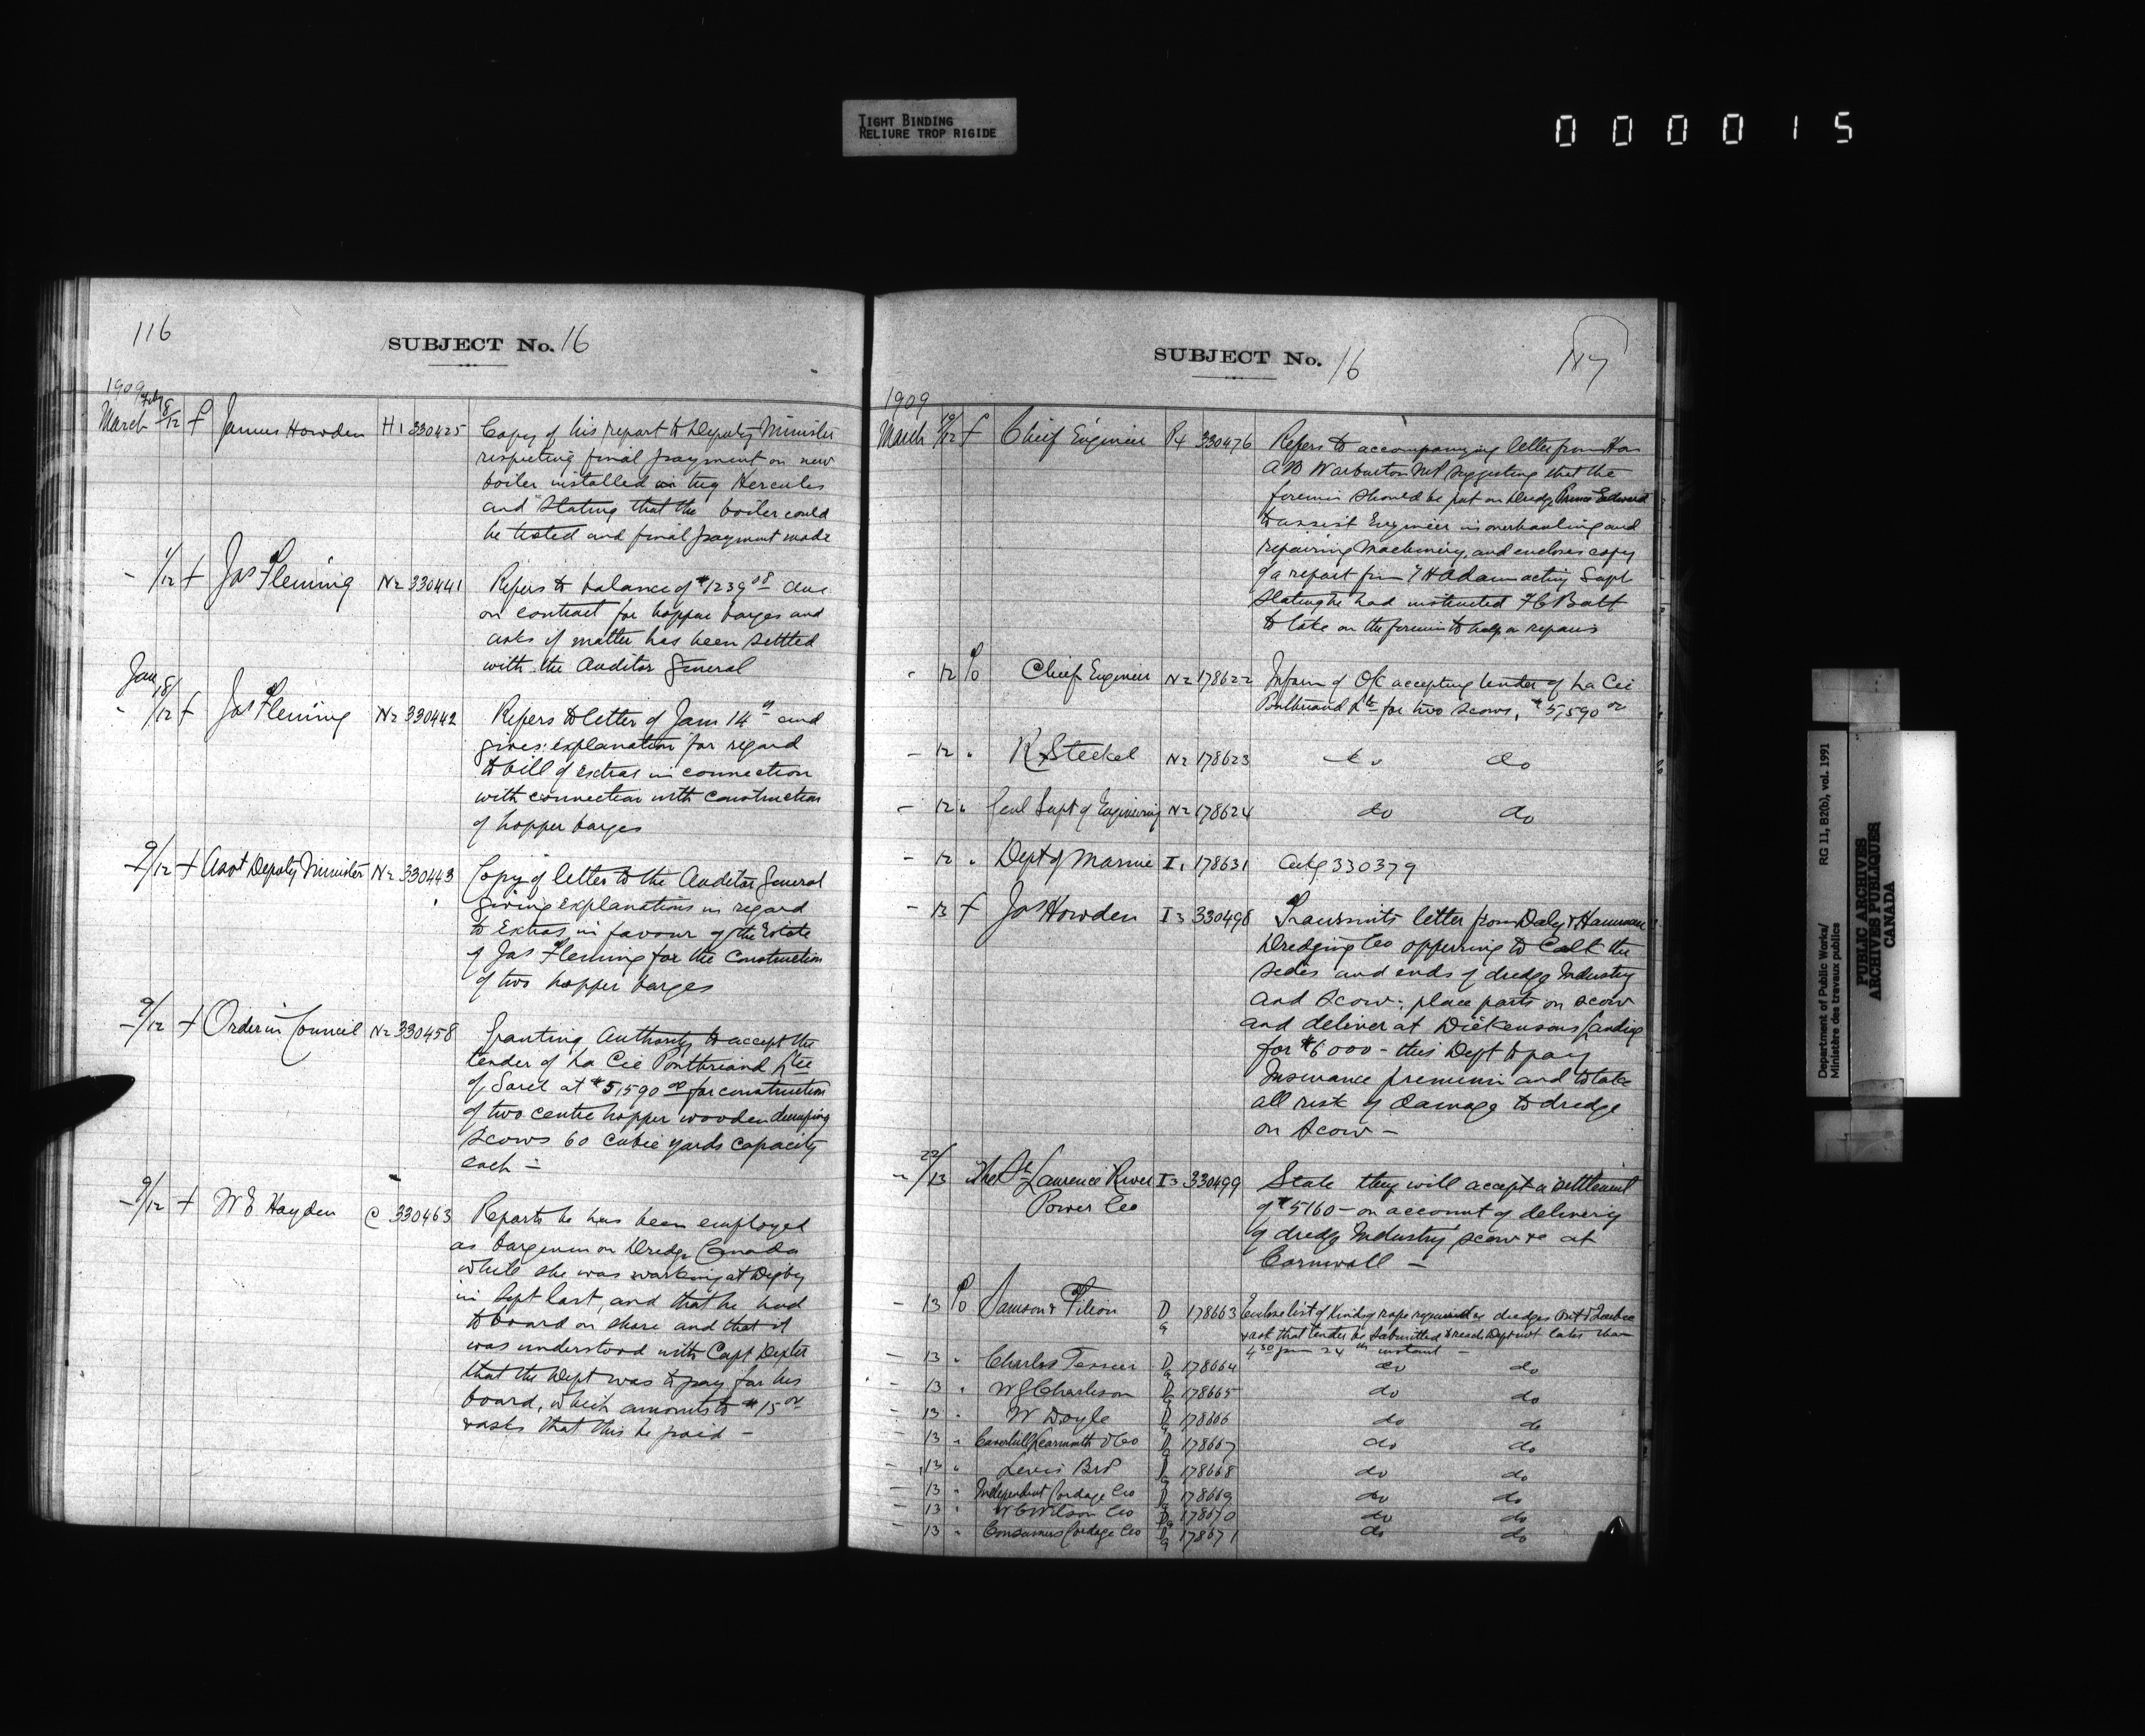 TIGHT BINDING
RELIURE TROP RIGIDE
000015
116
SUBJECT No. 16
1909
March Feby 8/12 f James Howden H1 330425 Copy of his report to Deputy Minister
respecting final payment on new
boiler installed in tug Hercules
and stating that the boiler could
be tested and final payment made
- 1/12 f Jas Fleming N2 330441 Refers to balance of $1239 08 due
on contract for hopper barges and
asks if matter has been settled
with the Auditor General
Jan 18/12 f Jas Fleming N2 330442 Refers to letter of Jan 14th and
gives explanation for regard
to bill of extras in connection
with connection with construction
of hopper barges
- 9/12 f Asst Deputy Minister N2 330443 Copy of letter to the Auditor General
giving explanations in regard
to Extras in favour of the Estate
of Jas Fleming for the construction
of two hopper barges
- 9/12 f Order in Council N2 330458 Granting Authority to accept the
tender of La Cie Pontbriand Ltee
of Sorel at $5,590 00 for construction
of two centre hopper wooden dumping
scows 60 cubic yards capacity
each -
- 9/12 f W E Hayden C 330463 Reports he has been employed
as bargeman on Dredge Canada
while she was working at Digby
in Sept last, and that he had
to board on shore and that it
was understood with Capt
that the Dept was to pay for his
board, which amounts to $15 00
& asks that this be paid -
SUBJECT No. 16
117
1909
March 10/12 f Chief Engineer P4 330476 Refers to accompanying letter from Hon
A B Warburton MP suggesting that the
firemen should be put on Dredge Prince Edward
to assist Engineer in overhauling and
repairing machinery, and encloses copy
of a report from H Adam acting Supt
stating he had instructed
to take on the firemen to help on repairs
- 12 % Chief Engineer N2 178622 Inform of OC accepting tender of La Cie
Pontbriand Lte for two scows, $5,590 00
- 12 " R Steckel N2 178623 do do
- 12 " Genl Supt of Engineering N2 178624 do do
- 12 " Dept of Marine I1 178631 Ackg 330379
- 13 f Jas Howden I3 330498 Transmits letter from Daly & Hannan
Dredging Co offering to Calk the
sides and ends of dredge Industry
and scow; place parts on scow
and deliver at Dickensons Landing
for $6000 - this Dept to pay
Insurance premium and to take
all risk of damage to dredge
on scow -
- 22/13 The St Lawrence River I3 330499 State they will accept a settlement
Power Co of $5160 - on account of delivering
of dredge Industry scow &c at
Cornwall -
- 13 % Samson & Filion D9 178663 Enclose list of kinds of rope required for dredges Ont & Quebec
& ask that tender be submitted & reach Dept not later than
4 30 pm 24th instant -
- 13 " Charles Tessier D9 178664 do do
- 13 " W J Charleson D9 178665 do do
- 13 " W Doyle D9 178666 do do
- 13 " Caverhill Learmonth & Co D9 178667 do do
- 13 " Lewis Bros D9 178668 do do
- 13 " Independent Cordage Co D9 178669 do do
- 13 " W C Wilson Co D9 178670 do do
- 13 " Consumers Cordage Co D9 178671 do do
Department of Public Works/
Ministère des travaux publics
RG 11, B2(b), vol. 1991
PUBLIC ARCHIVES
ARCHIVES PUBLIQUES
CANADA